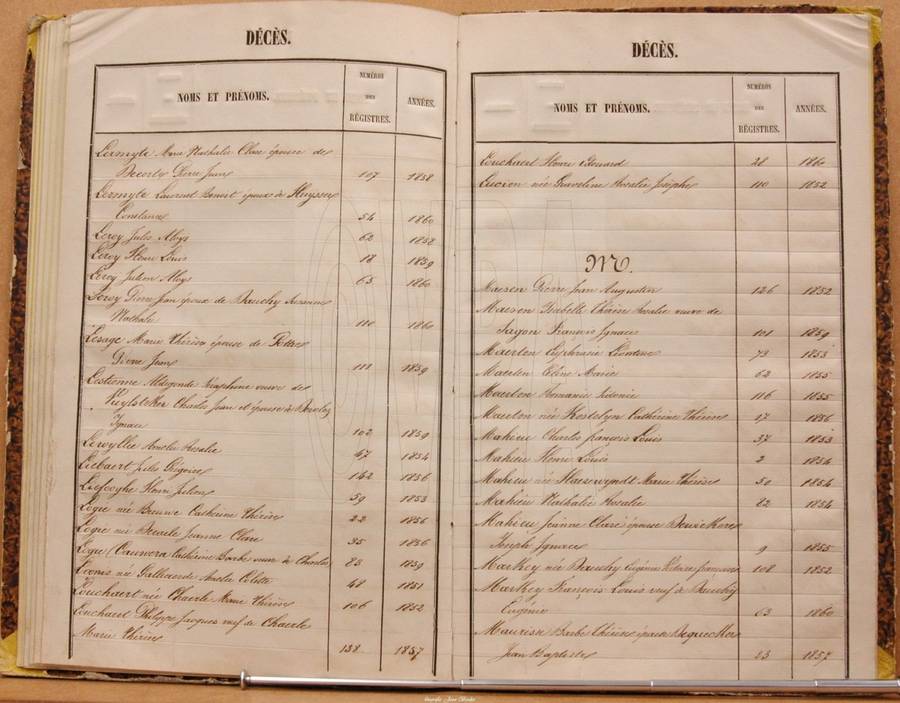 DÉCÈS.
NOMS ET PRÉNOMS.
NUMÉROS
DES
RÉGISTRES.
ANNÉES.
Lermyte Marie Nathalie Clare épouse de
Pierre Jean 107 1858
Lermyte Laurent Benoit époux à Huyssen
Constance 54 1860
Leroy Jules Aloys 62 1852
Leroy Henri Louis 18 1859
Leroy Julien Aloys 65 1860
Leroy Pierre Jean époux de Bauchy Suzanne
Nathalie 110 1860
Lesage Marie Thérèse épouse de
Pierre Jean 111 1859
Lestienne Aldegonde Séraphine veuve de
Kuylsteker Charles Jean et épouse à
Ignace 102 1859
Amélie Rosalie 47 1854
Liebaert Jules Grégoire 142 1856
Liefooghe Henri Julien 59 1853
Logie née Catherine Thérèse 22 1856
Logie née Jeanne Clare 35 1856
Logie Catherine Barbe veuve à Charles 83 1859
née Amélie Colette 48 1851
Louchaert née Chaerle Marie Thérèse 106 1852
Louchaert Philippe Jacques veuf de Chaerle
Marie Thérèse 138 1857
DÉCÈS.
NOMS ET PRÉNOMS.
NUMÉROS
DES
RÉGISTRES.
ANNÉES.
Louchaert Henri Edouard 28 1860
Lucion née Graveline Rosalie Josèphe 110 1852
M.
Maesen Pierre Jean Augustin 126 1852
Maesen Isabelle Thérèse Rosalie veuve de
François Ignace 101 1859
Maerten Euphrasie Léontine 73 1853
Maerten Céline Marie 62 1855
Maerten Romanie Sidonie 116 1855
Maerten née Kestelyn Cathérine Thérèse 17 1856
Mahieu Charles françois Louis 37 1853
Mahieu Henri Louis 2 1854
Mahieu née Marie Thérèse 50 1854
Mahieu Nathalie Rosalie 82 1854
Mahieu Jeanne Clare épouse
Joseph Ignace 9 1855
Markey née Bauchy Eugénie Victoire françoise 108 1852
Markey François Louis veuf de Bauchy
Eugénie 63 1860
Barbe Thérèse épouse
Jean Baptiste 23 1857